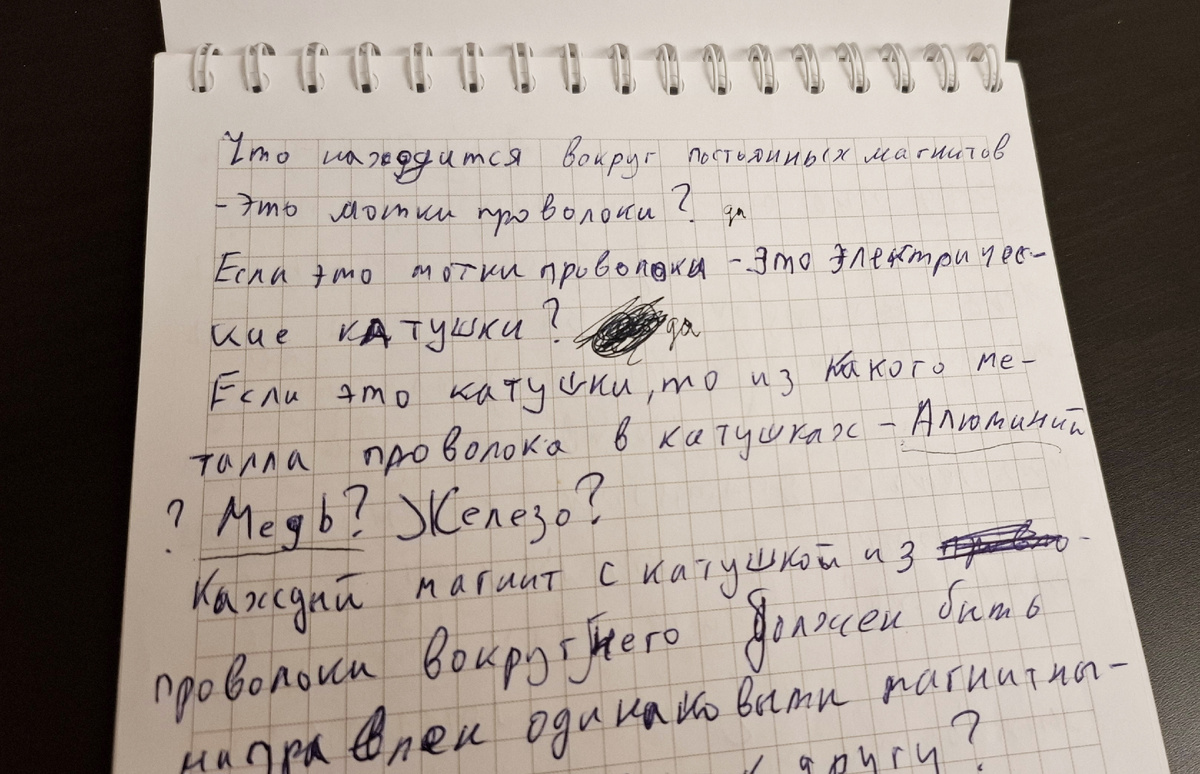 Что находится вокруг постоянных магнитов
- Это мотки проволоки? да
Если это мотки проволоки - Это электричес-
кие катушки? да
Если это катушки, то из какого ме-
талла проволока в катушках - Алюминий
? Медь? Железо?
Каждый магнит с катушкой из
проволоки вокруг него должен быть
направлен одинаковыми магнитны-
к другу?